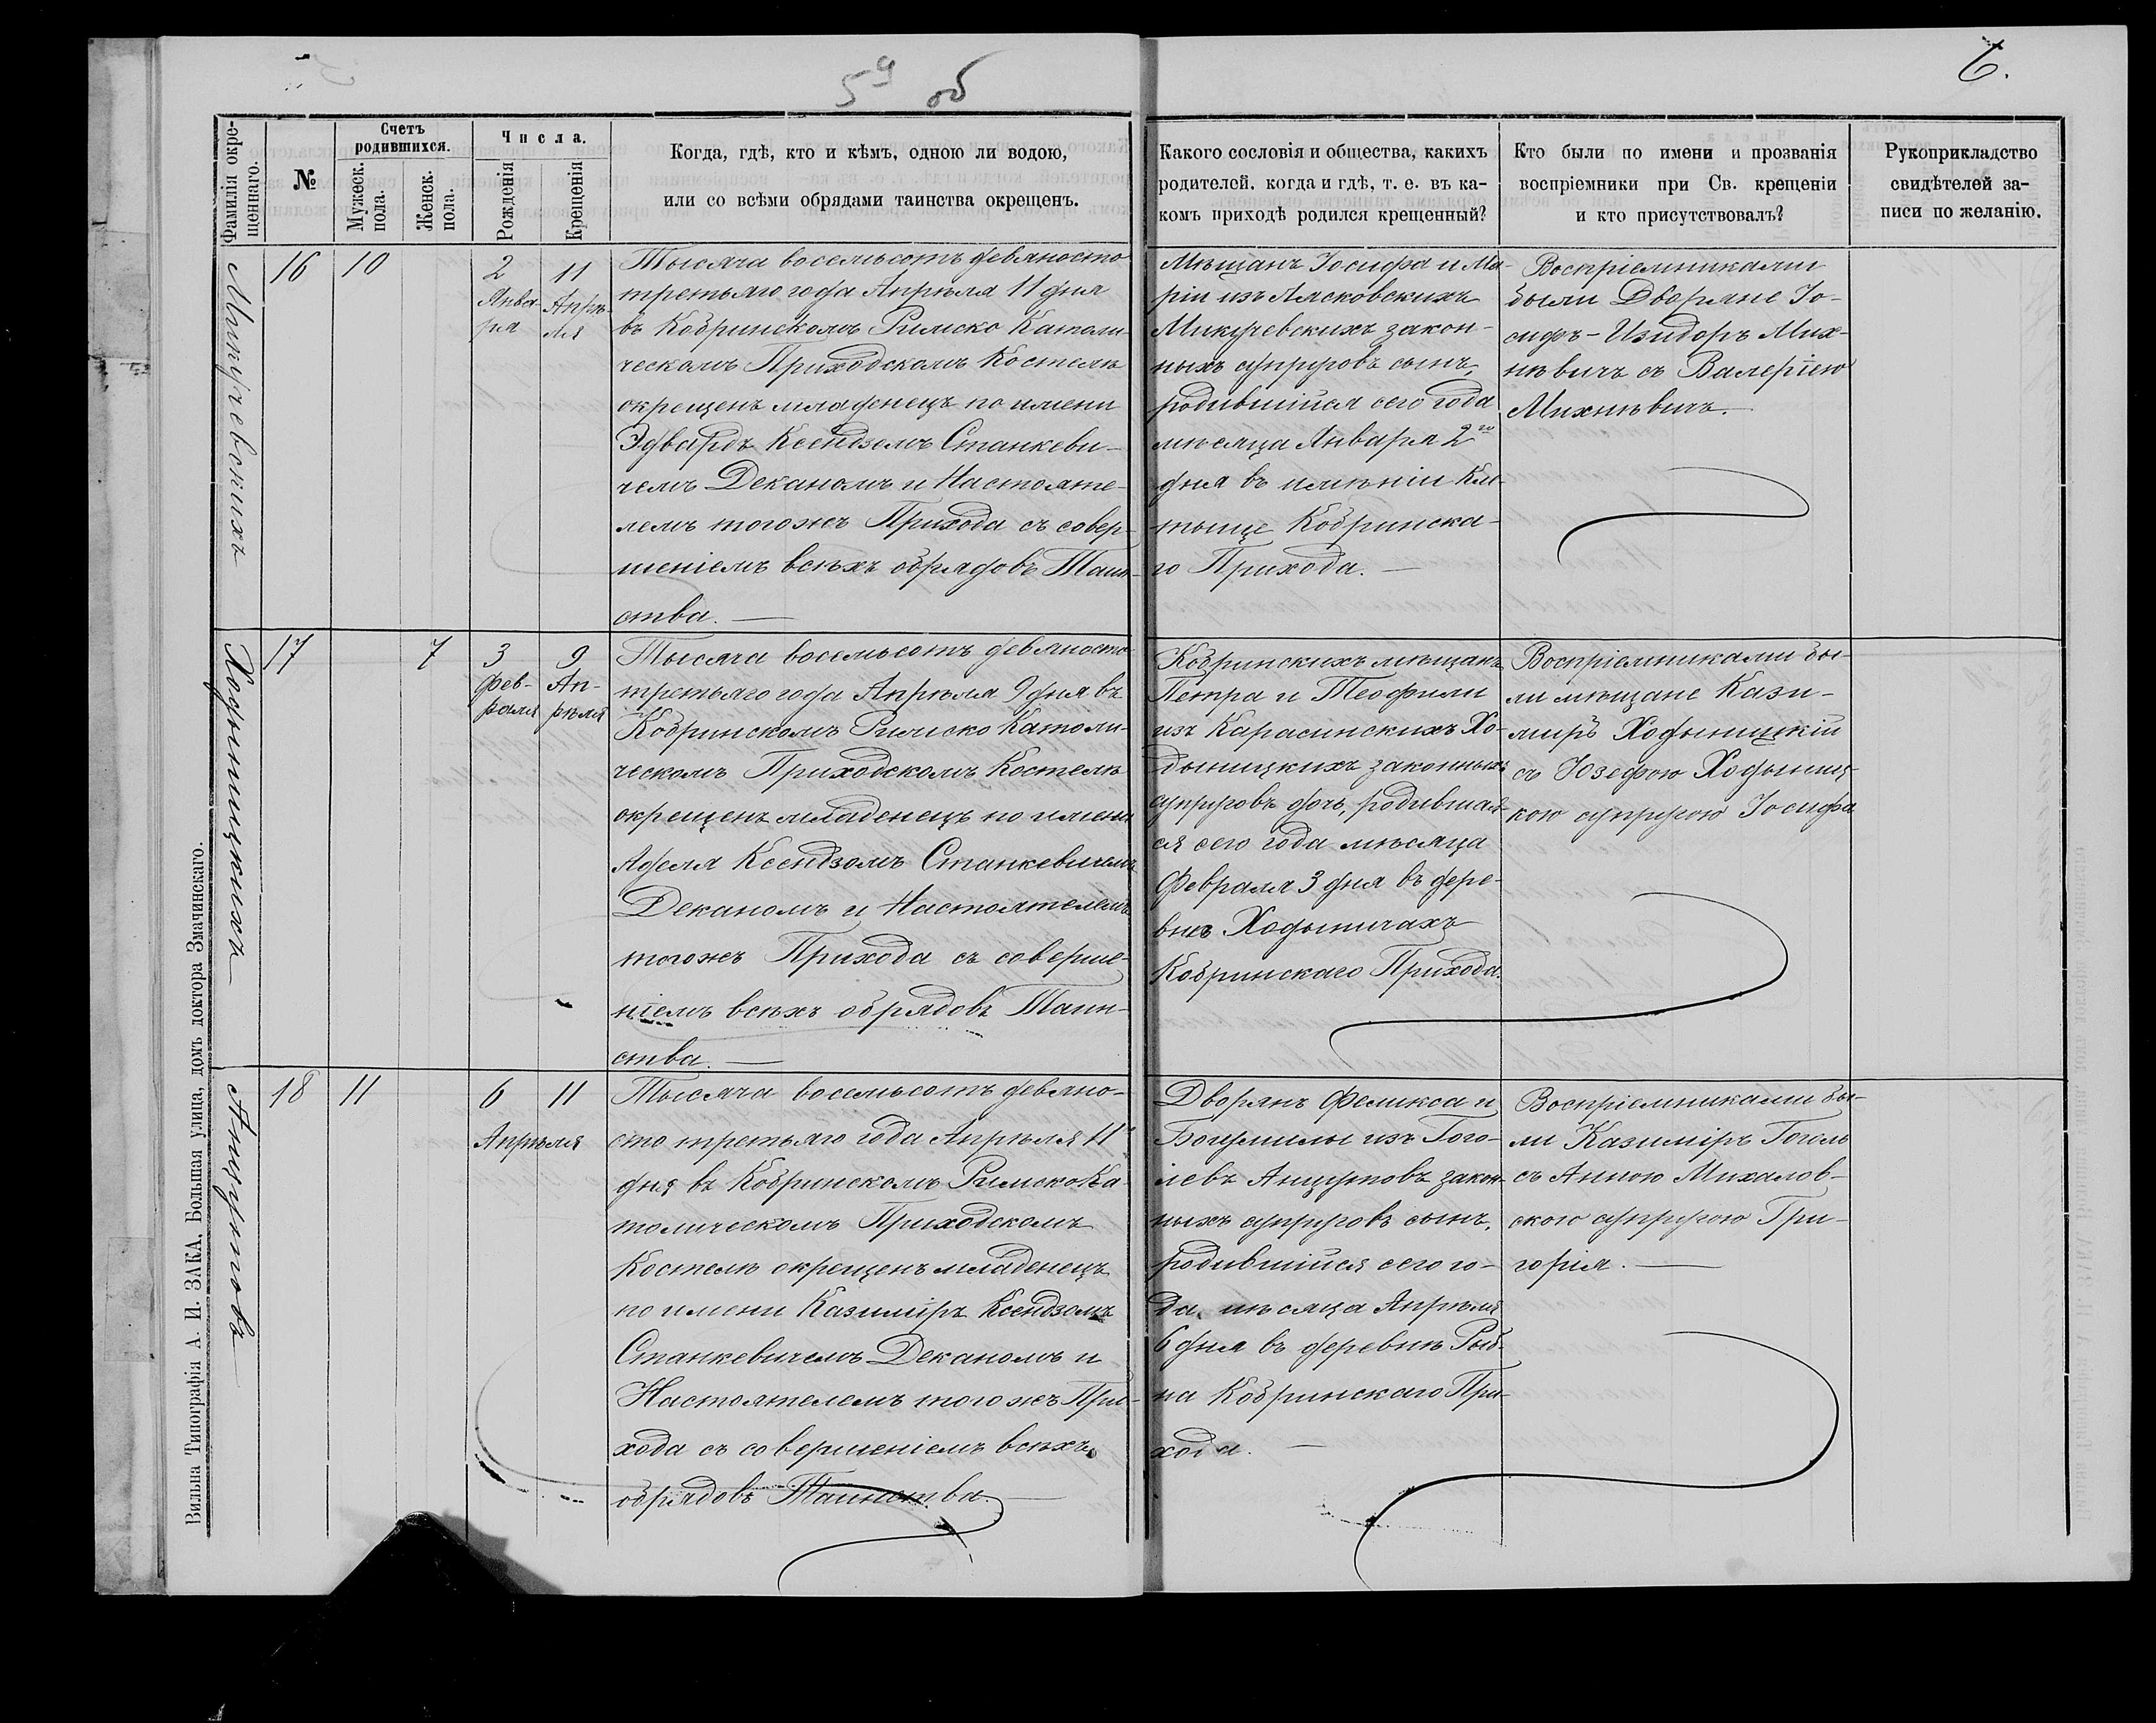 5 об
6.
Фамилія окре-
щеннаго.
№
Счетъ
родившихся.
Мужеск.
пола.
Женск.
пола.
Числа.
Рожденія
Крещенія
Когда, гдѣ, кто и кѣмъ, одною ли водою,
или со всѣми обрядами таинства окрещенъ.
Какого сословія и общества, какихъ
родителей, когда и гдѣ, т. е. въ ка-
комъ приходѣ родился крещенный?
Кто были по имени и прозванія
воспріемники при Св. крещеніи
и кто присутствовалъ?
Рукоприкладство
свидѣтелей за-
писи по желанію.
Микучевскихъ
16
10
2
Янва-
ря
11
Апрѣ-
ля
Тысяча восемьсотъ девяносто
третьяго года Апрѣля 11 дня
въ Кобринскомъ Римско Католи-
ческомъ Приходскомъ Костелѣ
окрещенъ младенецъ по имени
Эдвардъ Ксендзомъ Станкеви-
чемъ Деканомъ и Настояте-
лемъ тогожъ Прихода съ совер-
шеніемъ всѣхъ обрядовъ Таин-
ства. —
Мѣщанъ Іосифа и Ма-
ріи изъ Лясковскихъ
Микучевскихъ закон-
ныхъ супруговъ сынъ,
родившійся сего года
мѣсяца Января 2го
дня въ имѣніи
Кобринска-
го Прихода. —
Воспріемниками
были Дворяне Іо-
сифъ-Изидоръ Мих-
нѣвичъ съ Валеріею
Михнѣвичъ. —
Ходыницкихъ
17
7
3
Фев-
раля
9
Ап-
рѣля
Тысяча восемьсотъ девяносто
третьяго года Апрѣля 9 дня въ
Кобринскомъ Римско Католи-
ческомъ Приходскомъ Костелѣ
окрещенъ младенецъ по имени
Аделя Ксендзомъ Станкевичемъ
Деканомъ и Настоятелемъ
тогожъ Прихода съ соверше-
ніемъ всѣхъ обрядовъ Таин-
ства. —
Кобринскихъ мѣщанъ
Петра и Теофили
изъ Карасинскихъ Хо-
дыницкихъ законныхъ
супруговъ дочь, родившая-
ся сего года мѣсяца
Февраля 3 дня въ дере-
внѣ Ходыничахъ
Кобринскаго Прихода.
Воспріемниками бы-
ли мѣщане Кази-
миръ Ходыницкій
съ Юзефою Ходыниц-
кою супругою Іосифа
Анцутовъ
18
11
6
11
Апрѣля
Тысяча восемьсотъ девяно-
сто третьяго года Апрѣля 11
дня въ Кобринскомъ Римско Ка-
толическомъ Приходскомъ
Костелѣ окрещенъ младенецъ
по имени Казиміръ Ксендзомъ
Станкевичемъ Деканомъ и
Настоятелемъ тогожъ При-
хода съ совершеніемъ всѣхъ
обрядовъ Таинства. —
Дворянъ Феликса и
Богумилы изъ Гого-
левъ Анцутовъ закон-
ныхъ супруговъ сынъ,
родившійся сего го-
да, мѣсяца Апрѣля
6 дня въ деревнѣ Рыб-
на Кобринскаго При-
хода. —
Воспріемниками бы-
ли Казиміръ Гоголь
съ Анною Михалов-
скою супругою Гри-
горія. —
Вильна Типографія А. И. ЗАКА, Большая улица, домъ доктора Змачинскаго.